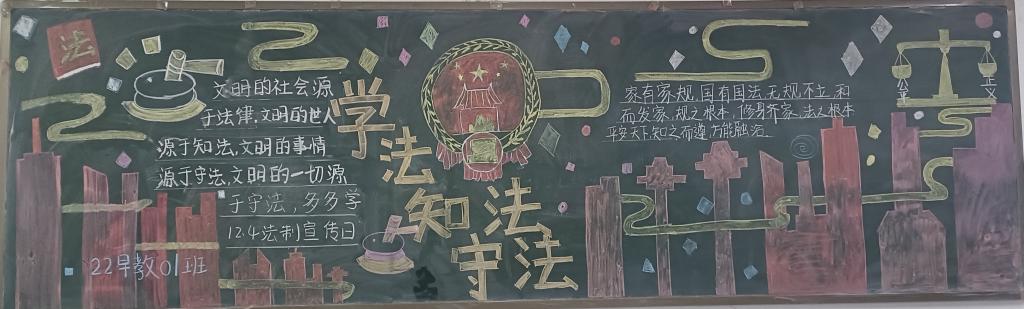 法
文明的社会源
于法律,文明的世人
源于知法,文明的事情
源于守法,文明的一切源
于守法,多多学
12.4法制宣传日
22早教01班
学法知法守法
家有家规,国有国法,无规不立,和
而发家,规之根本,修身齐家,法之根本
平安天下,知之而遵,方能融洽
公平
正义